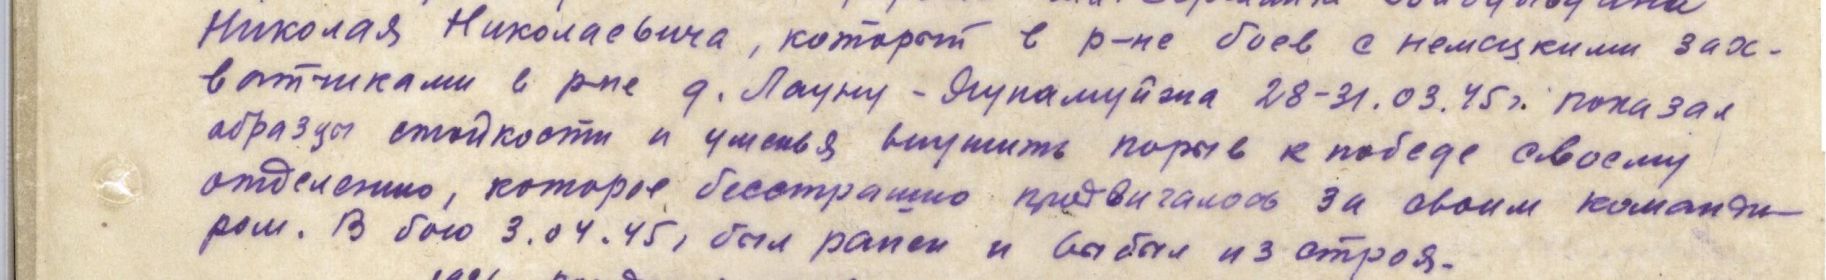 Николая Николаевича, который в р-не боев с немецкими зах-
ватчиками в р-не д. Лауну - Якунамуйжа 28-31.03.45г. показал
образцы стойкости и уменья внушить порыв к победе своему
отделению, которое бесстрашно продвигалось за своим команди-
ром. В бою 3.04.45, был ранен и выбыл из строя.